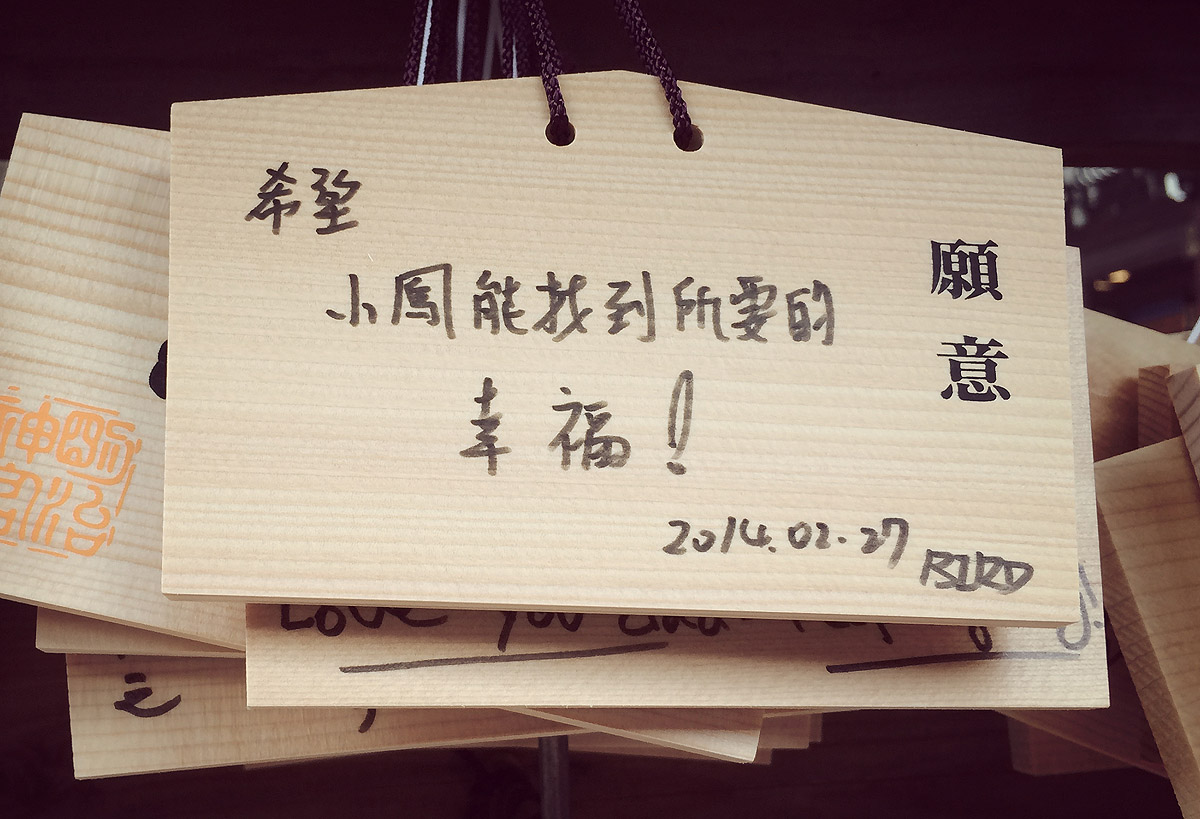 希望
小鳳能找到所要的
幸福!
2014.02.27
BIRD
願意
Love you and